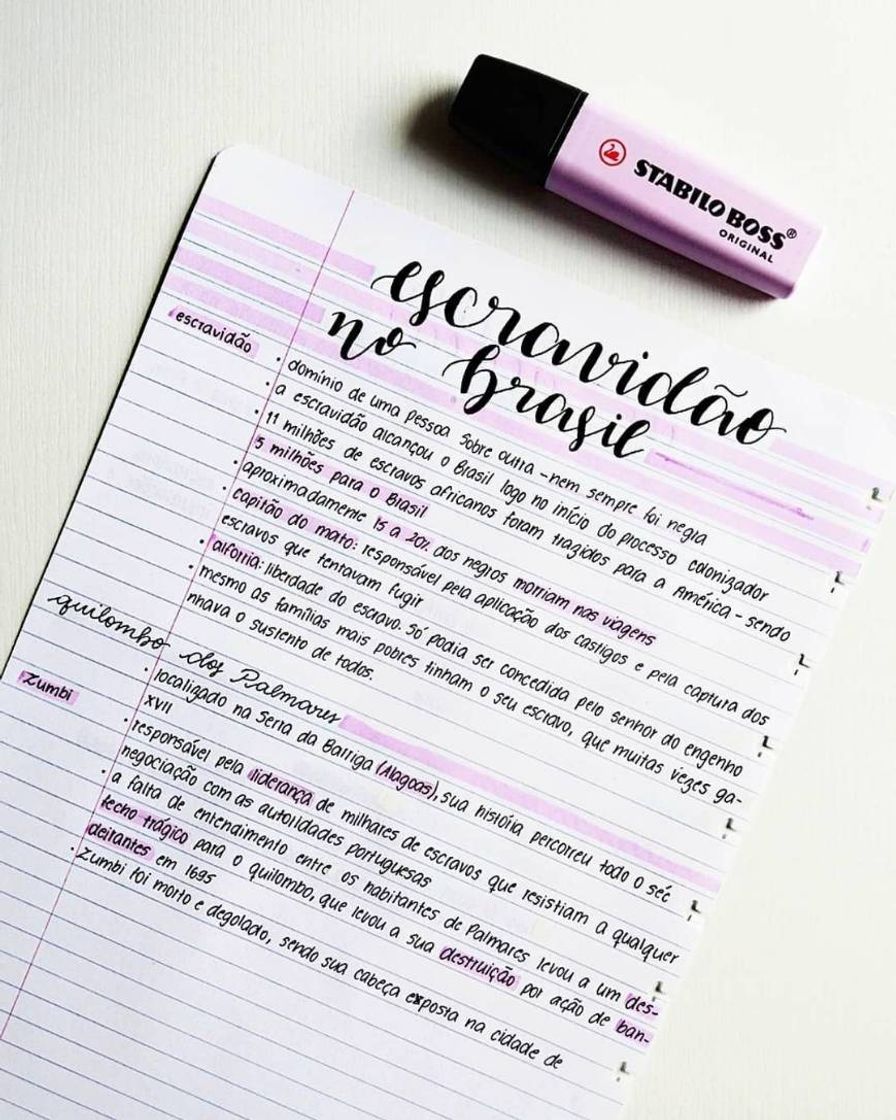 STABILO BOSS®
ORIGINAL
escravidão
no brasil
escravidão
• domínio de uma pessoa sobre outra - nem sempre foi negra
• a escravidão alcançou o Brasil logo no início do processo colonizador
• 11 milhões de escravos africanos foram trazidos para a América - sendo
5 milhões para o Brasil
• aproximadamente 15 a 20% dos negros morriam nas viagens
• capitão do mato: responsável pela aplicação dos castigos e pela captura dos
escravos que tentavam fugir
• alforria: liberdade do escravo. Só podia ser concedida pelo senhor do engenho
• mesmo as famílias mais pobres tinham o seu escravo, que muitas vezes ga-
nhava o sustento de todos.
quilombo dos Palmares
• localizado na Serra da Barriga (Alagoas), sua história percorreu todo o séc
XVII
Zumbi
• responsável pela liderança de milhares de escravos que resistiam a qualquer
negociação com as autoridades portuguesas
• a falta de entendimento entre os habitantes de Palmares levou a um des-
fecho trágico para o quilombo, que levou a sua destruição por ação de ban-
deirantes em 1695
• Zumbi foi morto e degolado, sendo sua cabeça exposta na cidade de